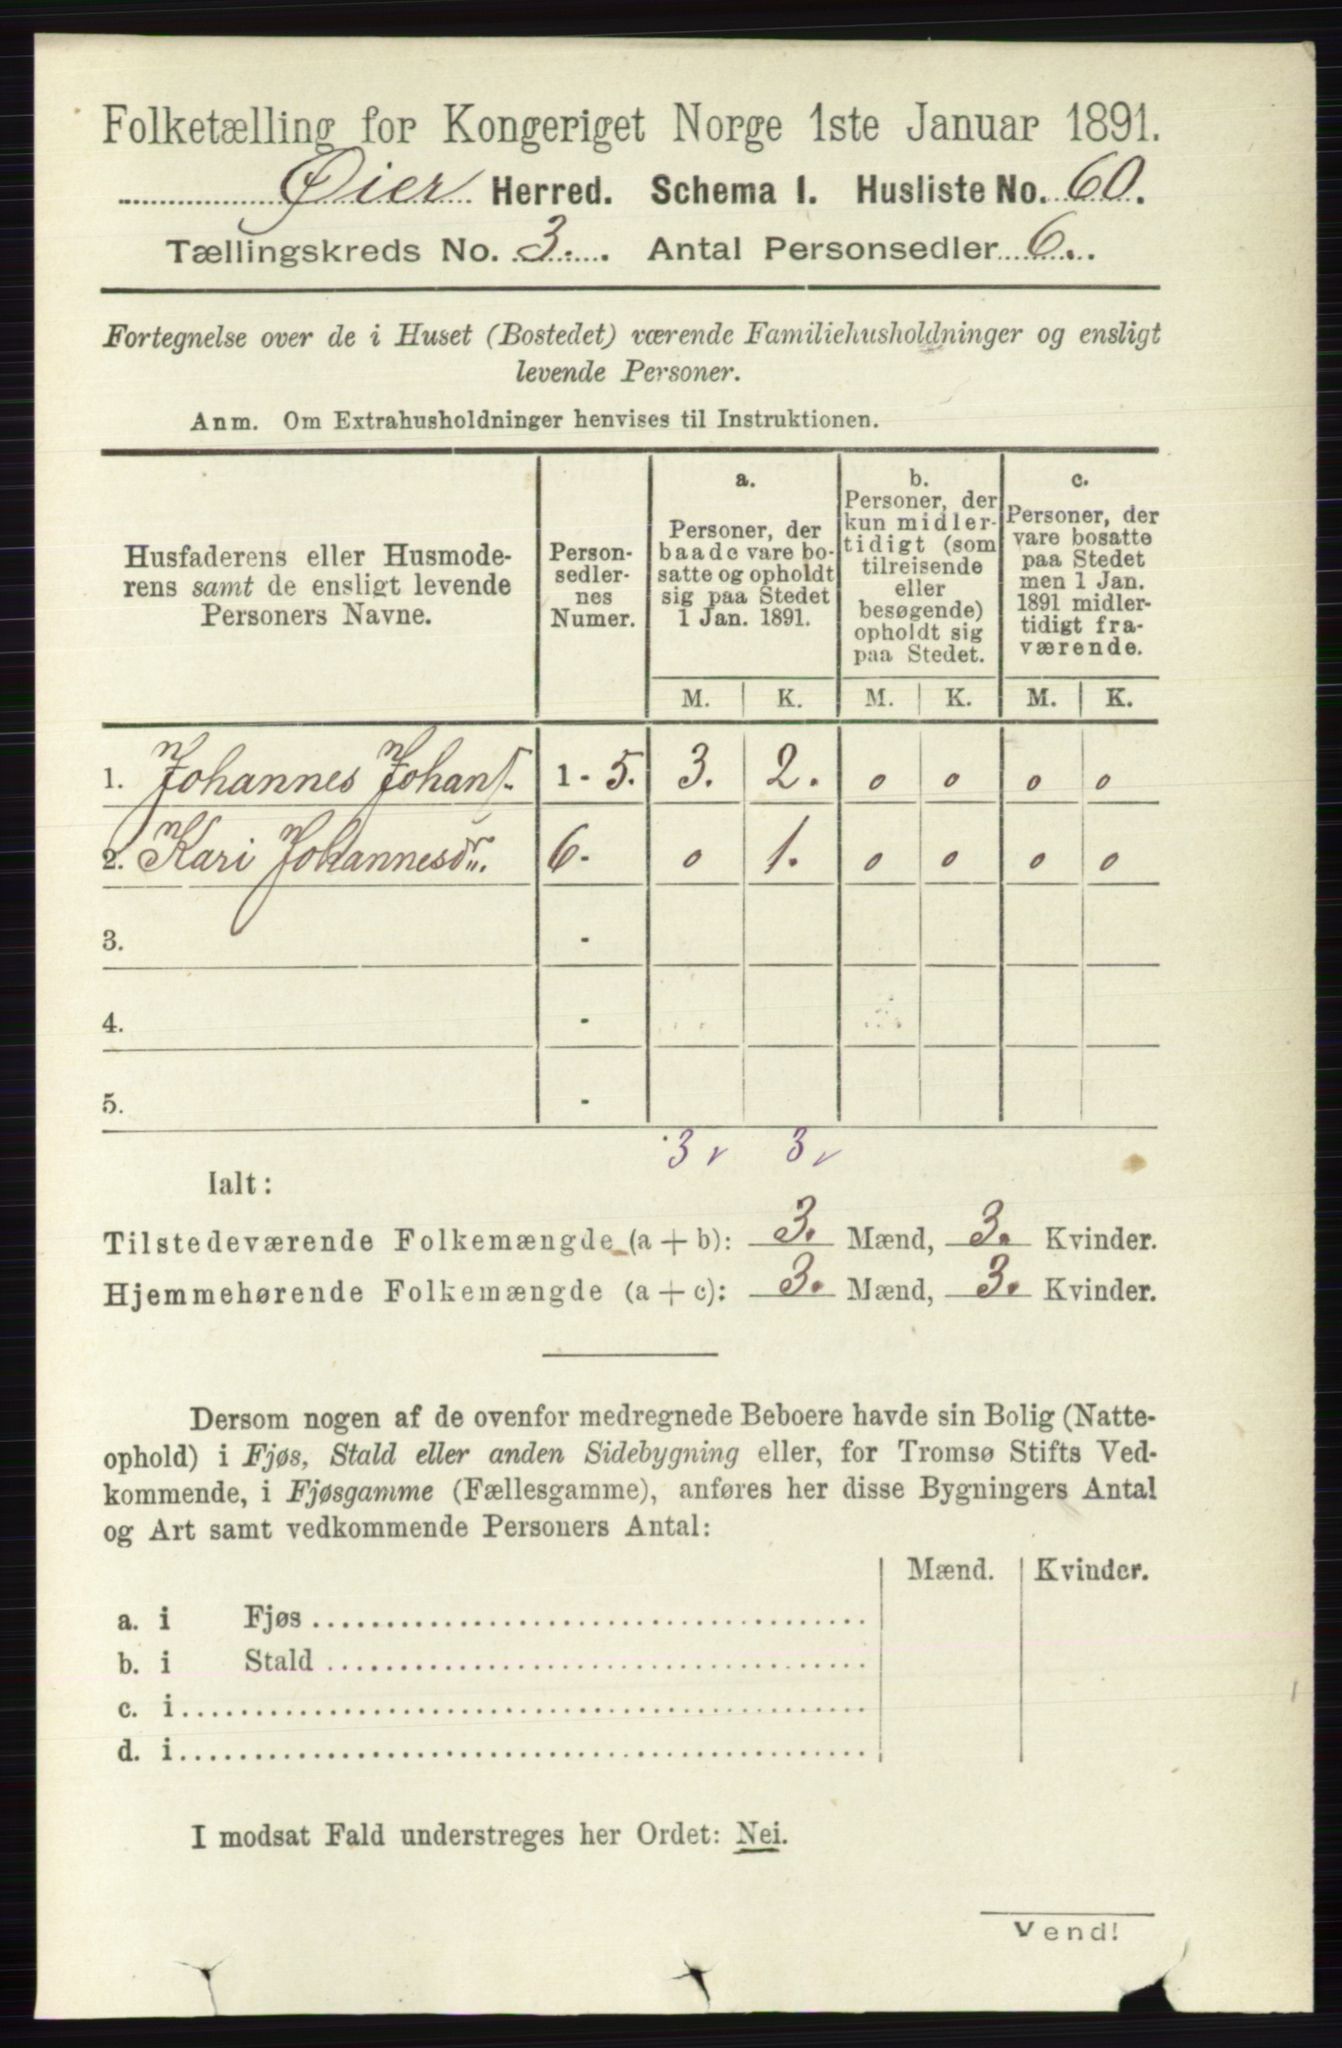 Folketælling for Kongeriget Norge 1ste Januar 1891.
Øier Herred. Schema I. Husliste No. 60.
Tællingskreds No. 3. Antal Personsedler 6.
Fortegnelse over de i Huset (Bostedet) værende Familiehusholdninger og ensligt
levende Personer.
Anm. Om Extrahusholdninger henvises til Instruktionen.
Husfaderens eller Husmode-
rens samt de ensligt levende
Personers Navne.
Person-
sedler-
nes
Numer.
a.
Personer, der
baade vare bo-
satte og opholdt
sig paa Stedet
1 Jan. 1891.
b.
Personer, der
kun midler-
tidigt (som
tilreisende
eller
besøgende)
opholdt sig
paa Stedet.
c.
Personer, der
vare bosatte
paa Stedet
men 1 Jan.
1891 midler-
tidigt fra-
værende.
M. K. M. K. M. K.
1. Johannes Johans. 1 - 5. 3. 2. 0 0 0 0
2. Kari Johannesdr. 6- 0 1. 0 0 0 0
3. -
4. -
5. -
3 v 3 v
Ialt:
Tilstedeværende Folkemængde (a + b): 3. Mænd, 3. Kvinder.
Hjemmehørende Folkemængde (a + c): 3. Mænd, 3. Kvinder.
Dersom nogen af de ovenfor medregnede Beboere havde sin Bolig (Natte-
ophold) i Fjøs, Stald eller anden Sidebygning eller, for Tromsø Stifts Ved-
kommende, i Fjøsgamme (Fællesgamme), anføres her disse Bygningers Antal
og Art samt vedkommende Personers Antal:
Mænd. Kvinder.
a. i Fjøs
b. i Stald
c. i
d. i
I modsat Fald understreges her Ordet: Nei.
Vend!